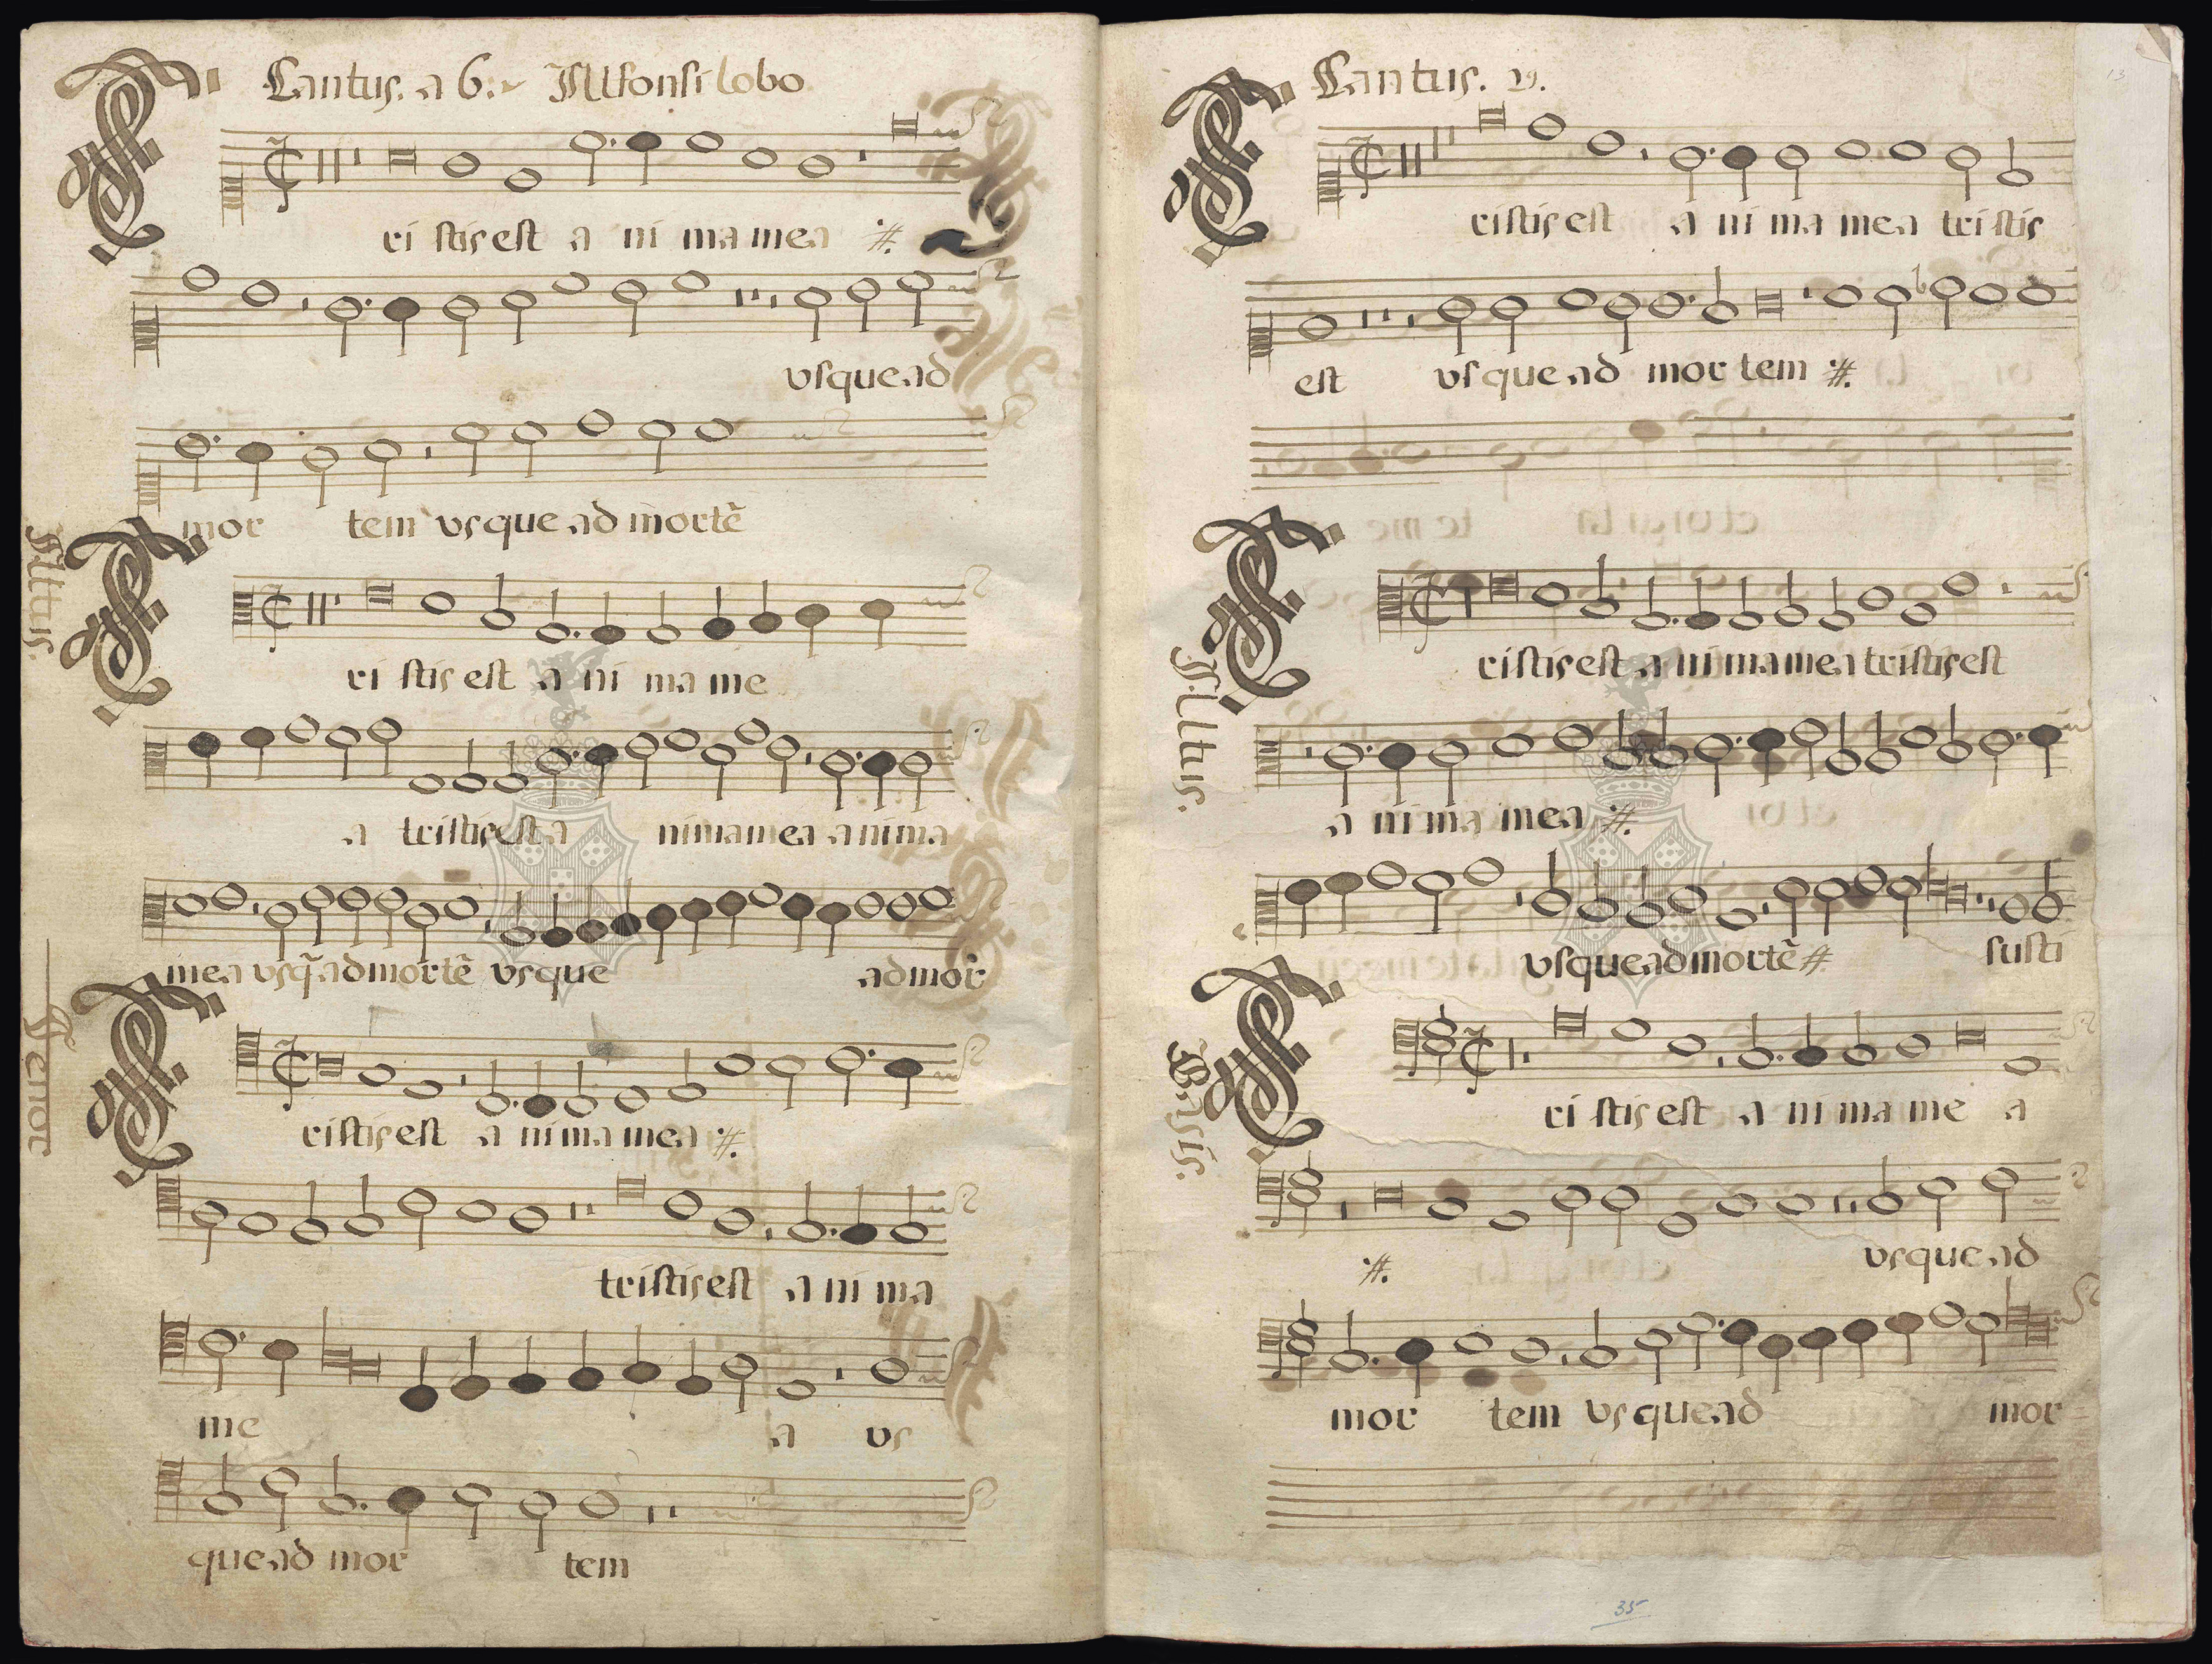 Cantus. a 6. Allfonsi lobo
T
ristis est a ni ma mea :#.
vsque ad
mor tem vsque ad mortẽ
Altus.
T
ri stis est a ni ma me
a tristis est a nima mea anima
mea vsq̃ ad mortẽ vsque ad mor
Tenor
T
ristis est a nima mea :#.
tristis est a ni ma
me a vs
que ad mor tem
Cantus. 2º.
T
ristis est a ni ma mea tristis
est vsque ad mor tem :#.
Altus.
T
ristis est a ni ma mea tristis est
a ni ma mea :#.
vsque ad mortẽ :#. susti
Basis.
T
ri stis est a ni ma me a
:#. vsque ad
mor tem vsque ad mor
13
35